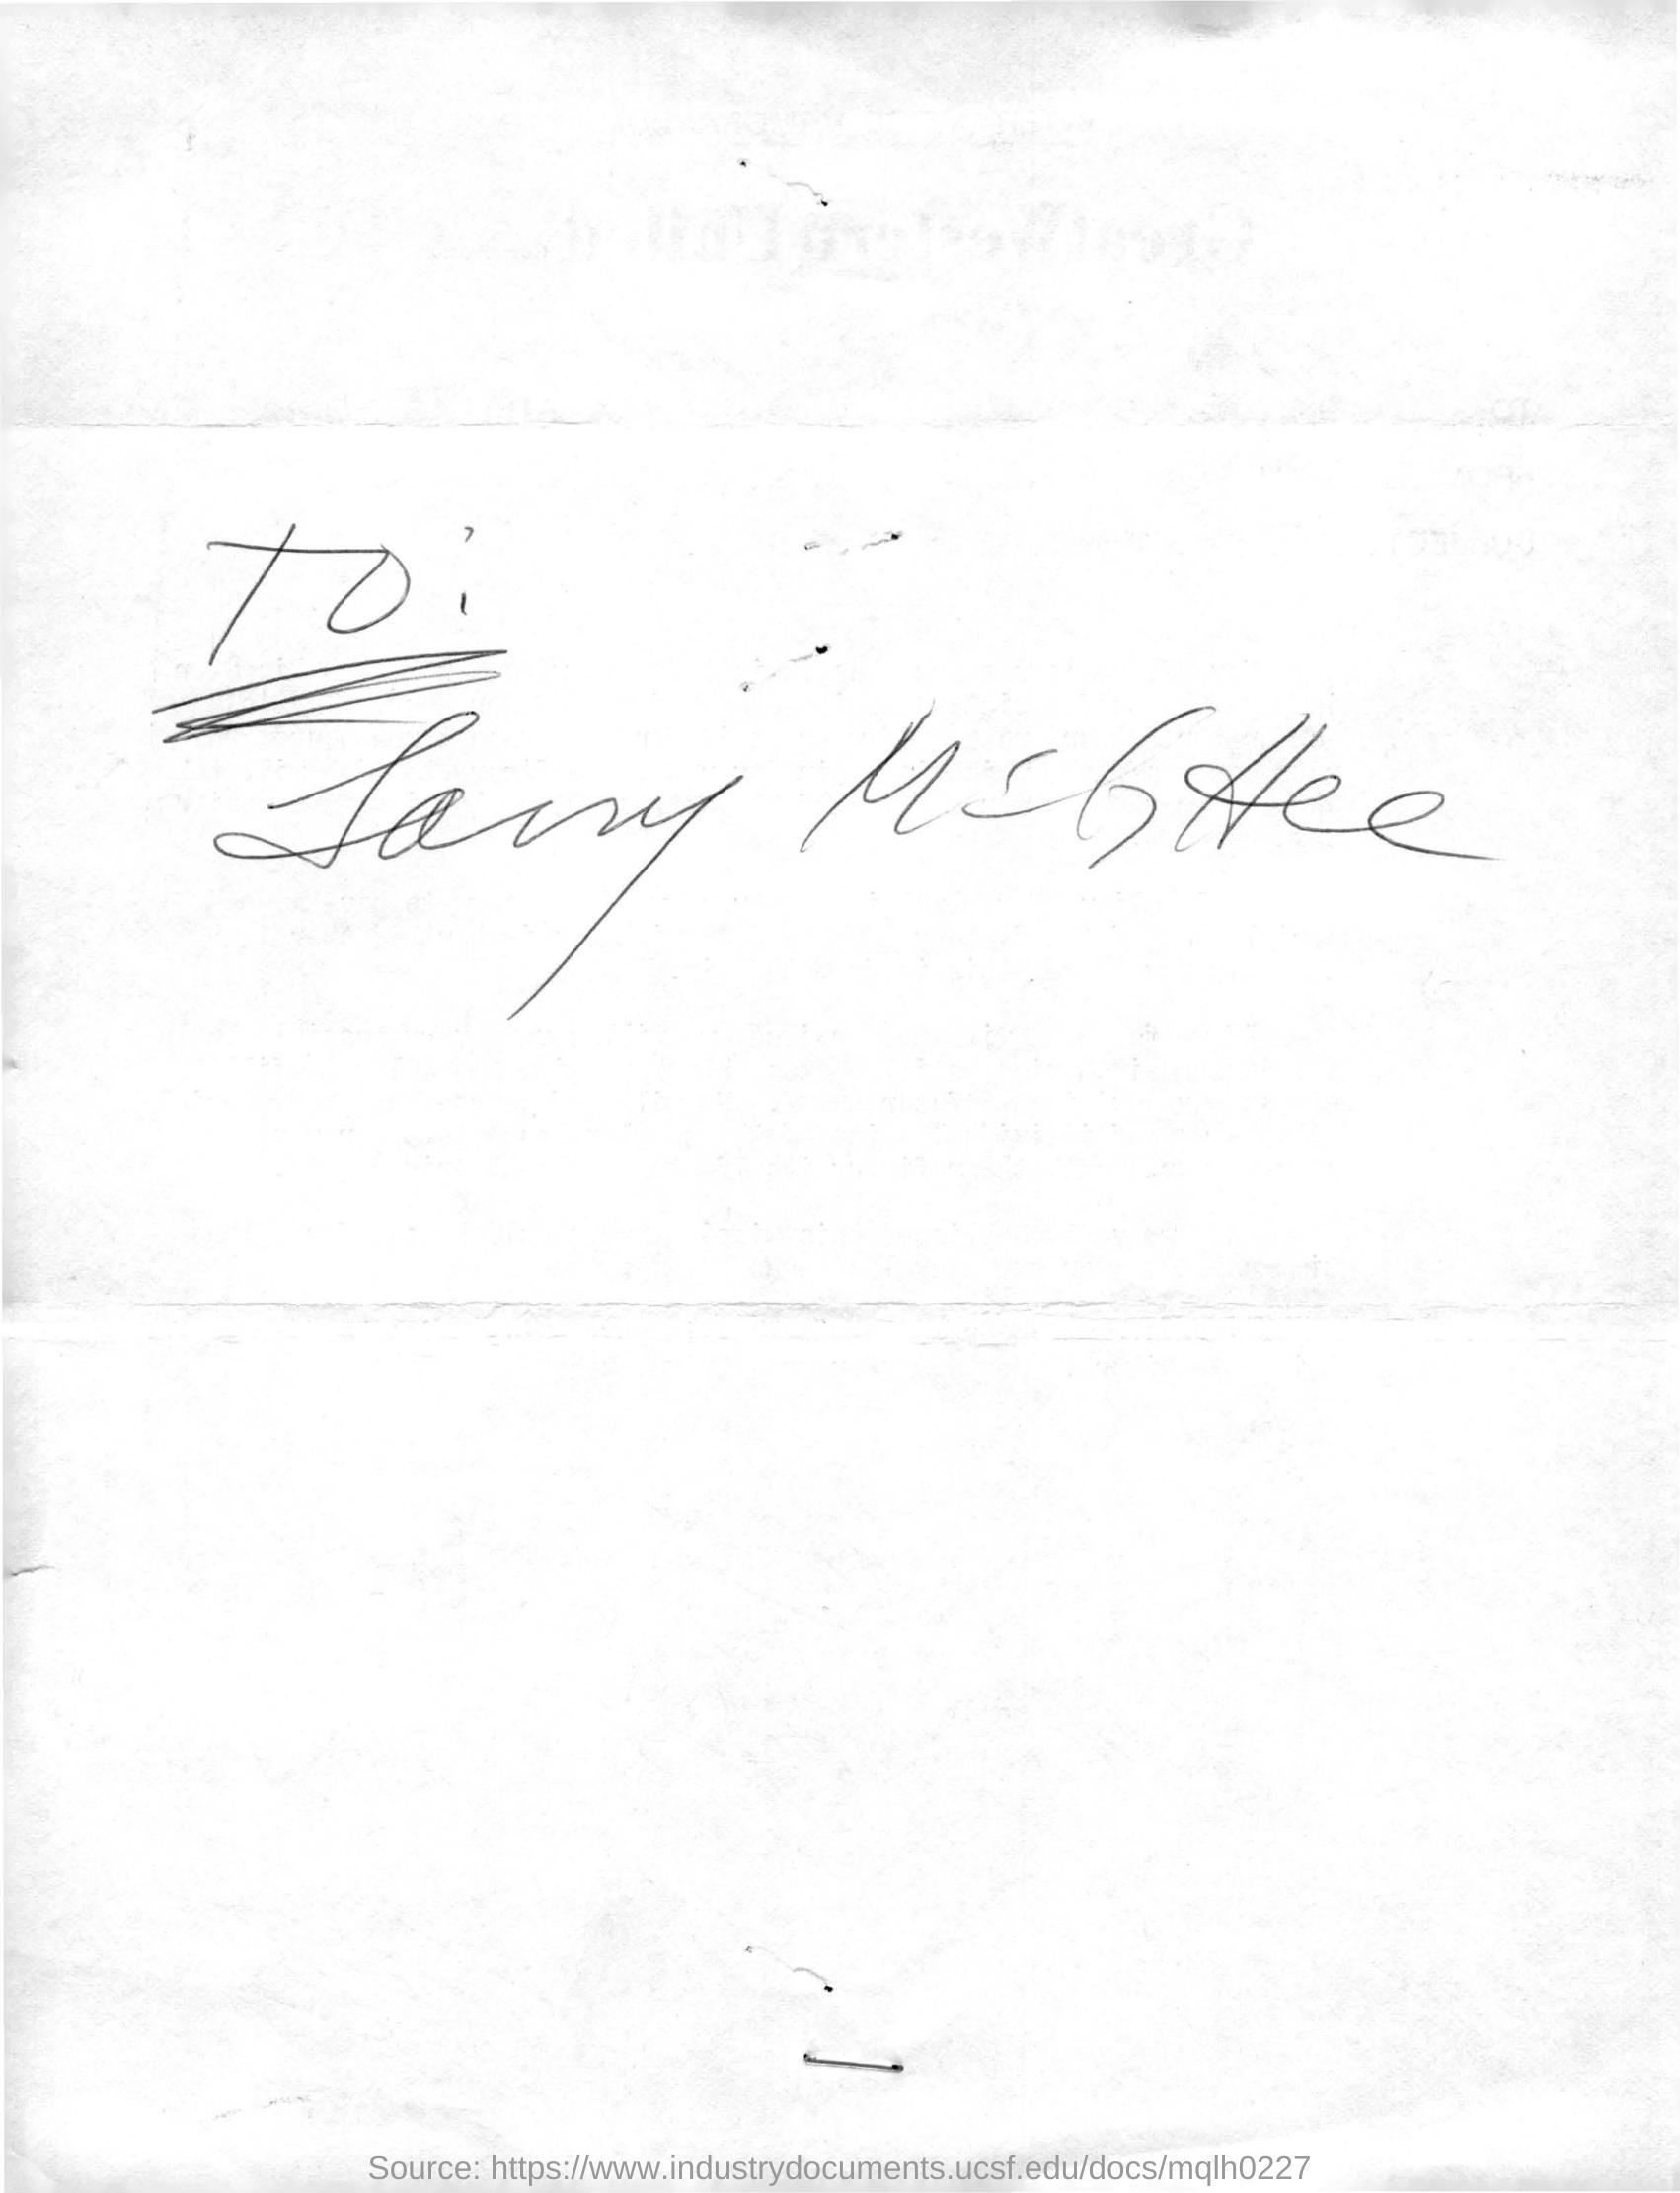 TO:
Larry McGHee
Source: https://www.industrydocuments.ucsf.edu/docs/mqlh0227